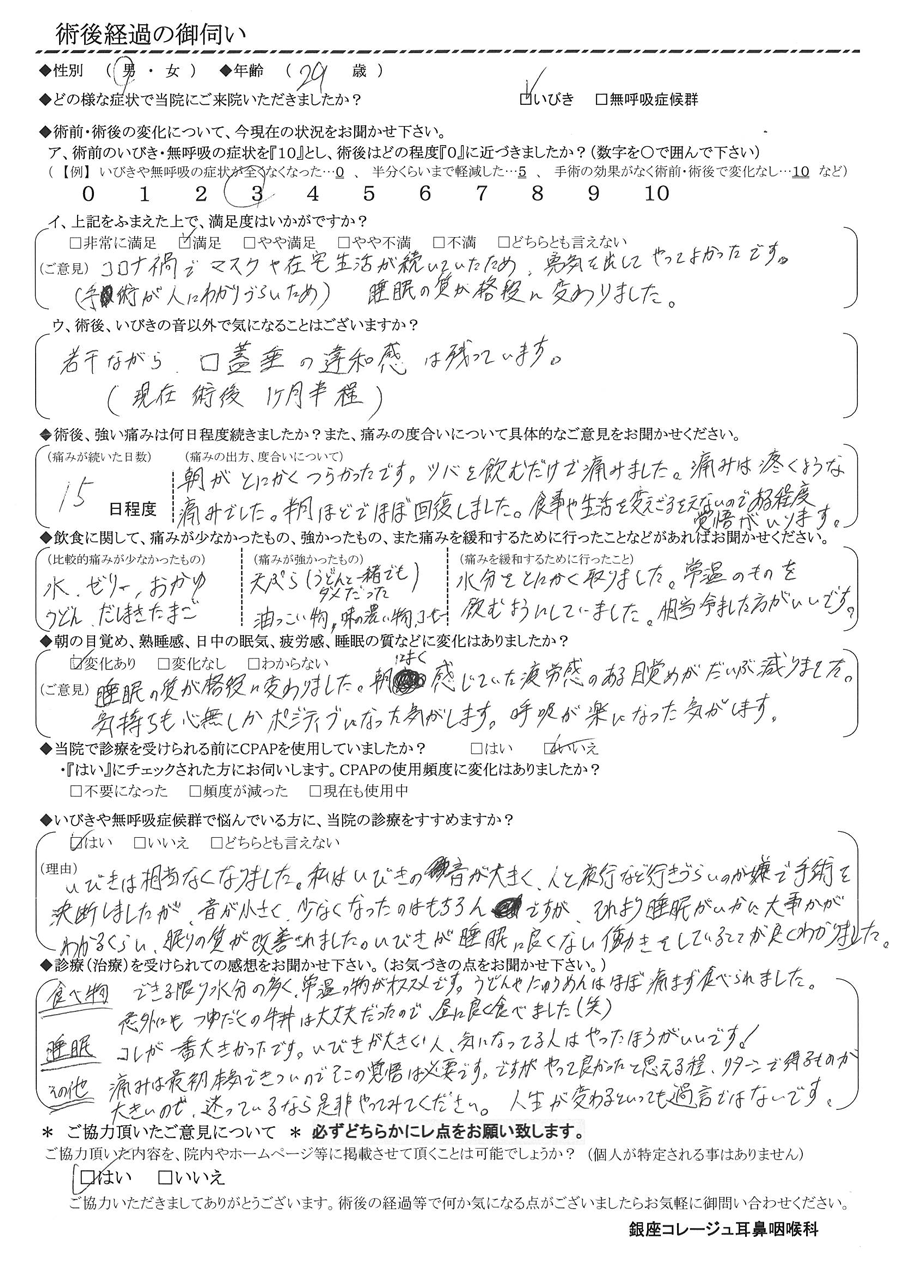 術後経過の御伺い
◆性別 （ 男 ・ 女 ） ◆年齢 （ 29 歳 ）
◆どの様な症状で当院にご来院いただきましたか？ ☑いびき □無呼吸症候群
◆術前・術後の変化について、今現在の状況をお聞かせ下さい。
ア、術前のいびき・無呼吸の症状を『10』とし、術後はどの程度『0』に近づきましたか？（数字を〇で囲んで下さい）
（【例】いびきや無呼吸の症状が全くなくなった…0 、 半分くらいまで軽減した…5 、 手術の効果がなく術前・術後で変化なし…10 など）
0 1 2 3 4 5 6 7 8 9 10
イ、上記をふまえた上で、満足度はいかがですか？
□非常に満足 ☑満足 □やや満足 □やや不満 □不満 □どちらとも言えない
（ご意見） コロナ禍で マスクや在宅生活が続いていたため、勇気を出して やってよかったです。
（手術が人にわかりづらいため） 睡眠の質が格段に変わりました。
ウ、術後、いびきの音以外で気になることはございますか？
若干ながら、口蓋垂の違和感は残っています。
（現在 術後 1ヶ月半程）
◆術後、強い痛みは何日程度続きましたか？また、痛みの度合いについて具体的なご意見をお聞かせください。
（痛みが続いた日数） （痛みの出方、度合いについて）
15 日程度
朝がとにかくつらかったです。ツバを飲むだけで痛みました。痛みは疼くような
痛みでした。半月ほどでほぼ回復しました。食事や生活を変えざるをえないのである程度
覚悟がいります。
◆飲食に関して、痛みが少なかったもの、強かったもの、また痛みを緩和するために行ったことなどがあればお聞かせください。
（比較的痛みが少なかったもの） （痛みが強かったもの） （痛みを緩和するために行ったこと）
水、ゼリー、おかゆ
うどん、だしまきたまご
天ぷら（うどんと一緒でも
ダメだった
油っこい物、味の濃い物、コーヒー
水分をとにかく取りました。常温のものを
飲むようにしていました。相当冷ました方がいいです。
◆朝の目覚め、熟睡感、日中の眠気、疲労感、睡眠の質などに変化はありましたか？
☑変化あり □変化なし □わからない
（ご意見） 睡眠の質が格段に変わりました。朝感じていた疲労感のある目覚めがだいぶ減りました。
気持ちも心無しかポジティブになった気がします。呼吸が楽になった気がします。
◆当院で診療を受けられる前にCPAPを使用していましたか？ □はい ☑いいえ
・『はい』にチェックされた方にお伺いします。CPAPの使用頻度に変化はありましたか？
□不要になった □頻度が減った □現在も使用中
◆いびきや無呼吸症候群で悩んでいる方に、当院の診療をすすめますか？
☑はい □いいえ □どちらとも言えない
（理由）
いびきは相当なくなりました。私はいびきの音が大きく、人と旅行など行きづらいのが嫌で手術を
決断しましたが、音が小さく、少なくなったのはもちろんですが、それより睡眠がいかに大事かが
わかるくらい、眠りの質が改善されました。いびきが睡眠に良くない働きをしていることが良くわかりました。
◆診療（治療）を受けられての感想をお聞かせ下さい。（お気づきの点をお聞かせ下さい。）
食べ物 できる限り水分の多く、常温の物がオススメです。うどんやにゅうめんはほぼ痛まず食べられました。
意外にも つゆだくの牛丼は大丈夫だったので、昼に良く食べました（笑）
睡眠 コレが一番大きかったです。いびきが大きい人、気になってる人はやったほうがいいです！
その他 痛みは最初本気できついのでそこの覚悟は必要です。ですがやって良かったと思える程、リターンで得るものが
大きいので、迷っているなら是非やってみてください。人生が変わるといっても過言ではないです。
＊ ご協力頂いたご意見について ＊ 必ずどちらかにレ点をお願い致します。
ご協力頂いた内容を、院内やホームページ等に掲載させて頂くことは可能でしょうか？（個人が特定される事はありません）
☑はい □いいえ
ご協力いただきましてありがとうございます。術後の経過等で何か気になる点がございましたらお気軽に御問い合わせください。
銀座コレージュ耳鼻咽喉科